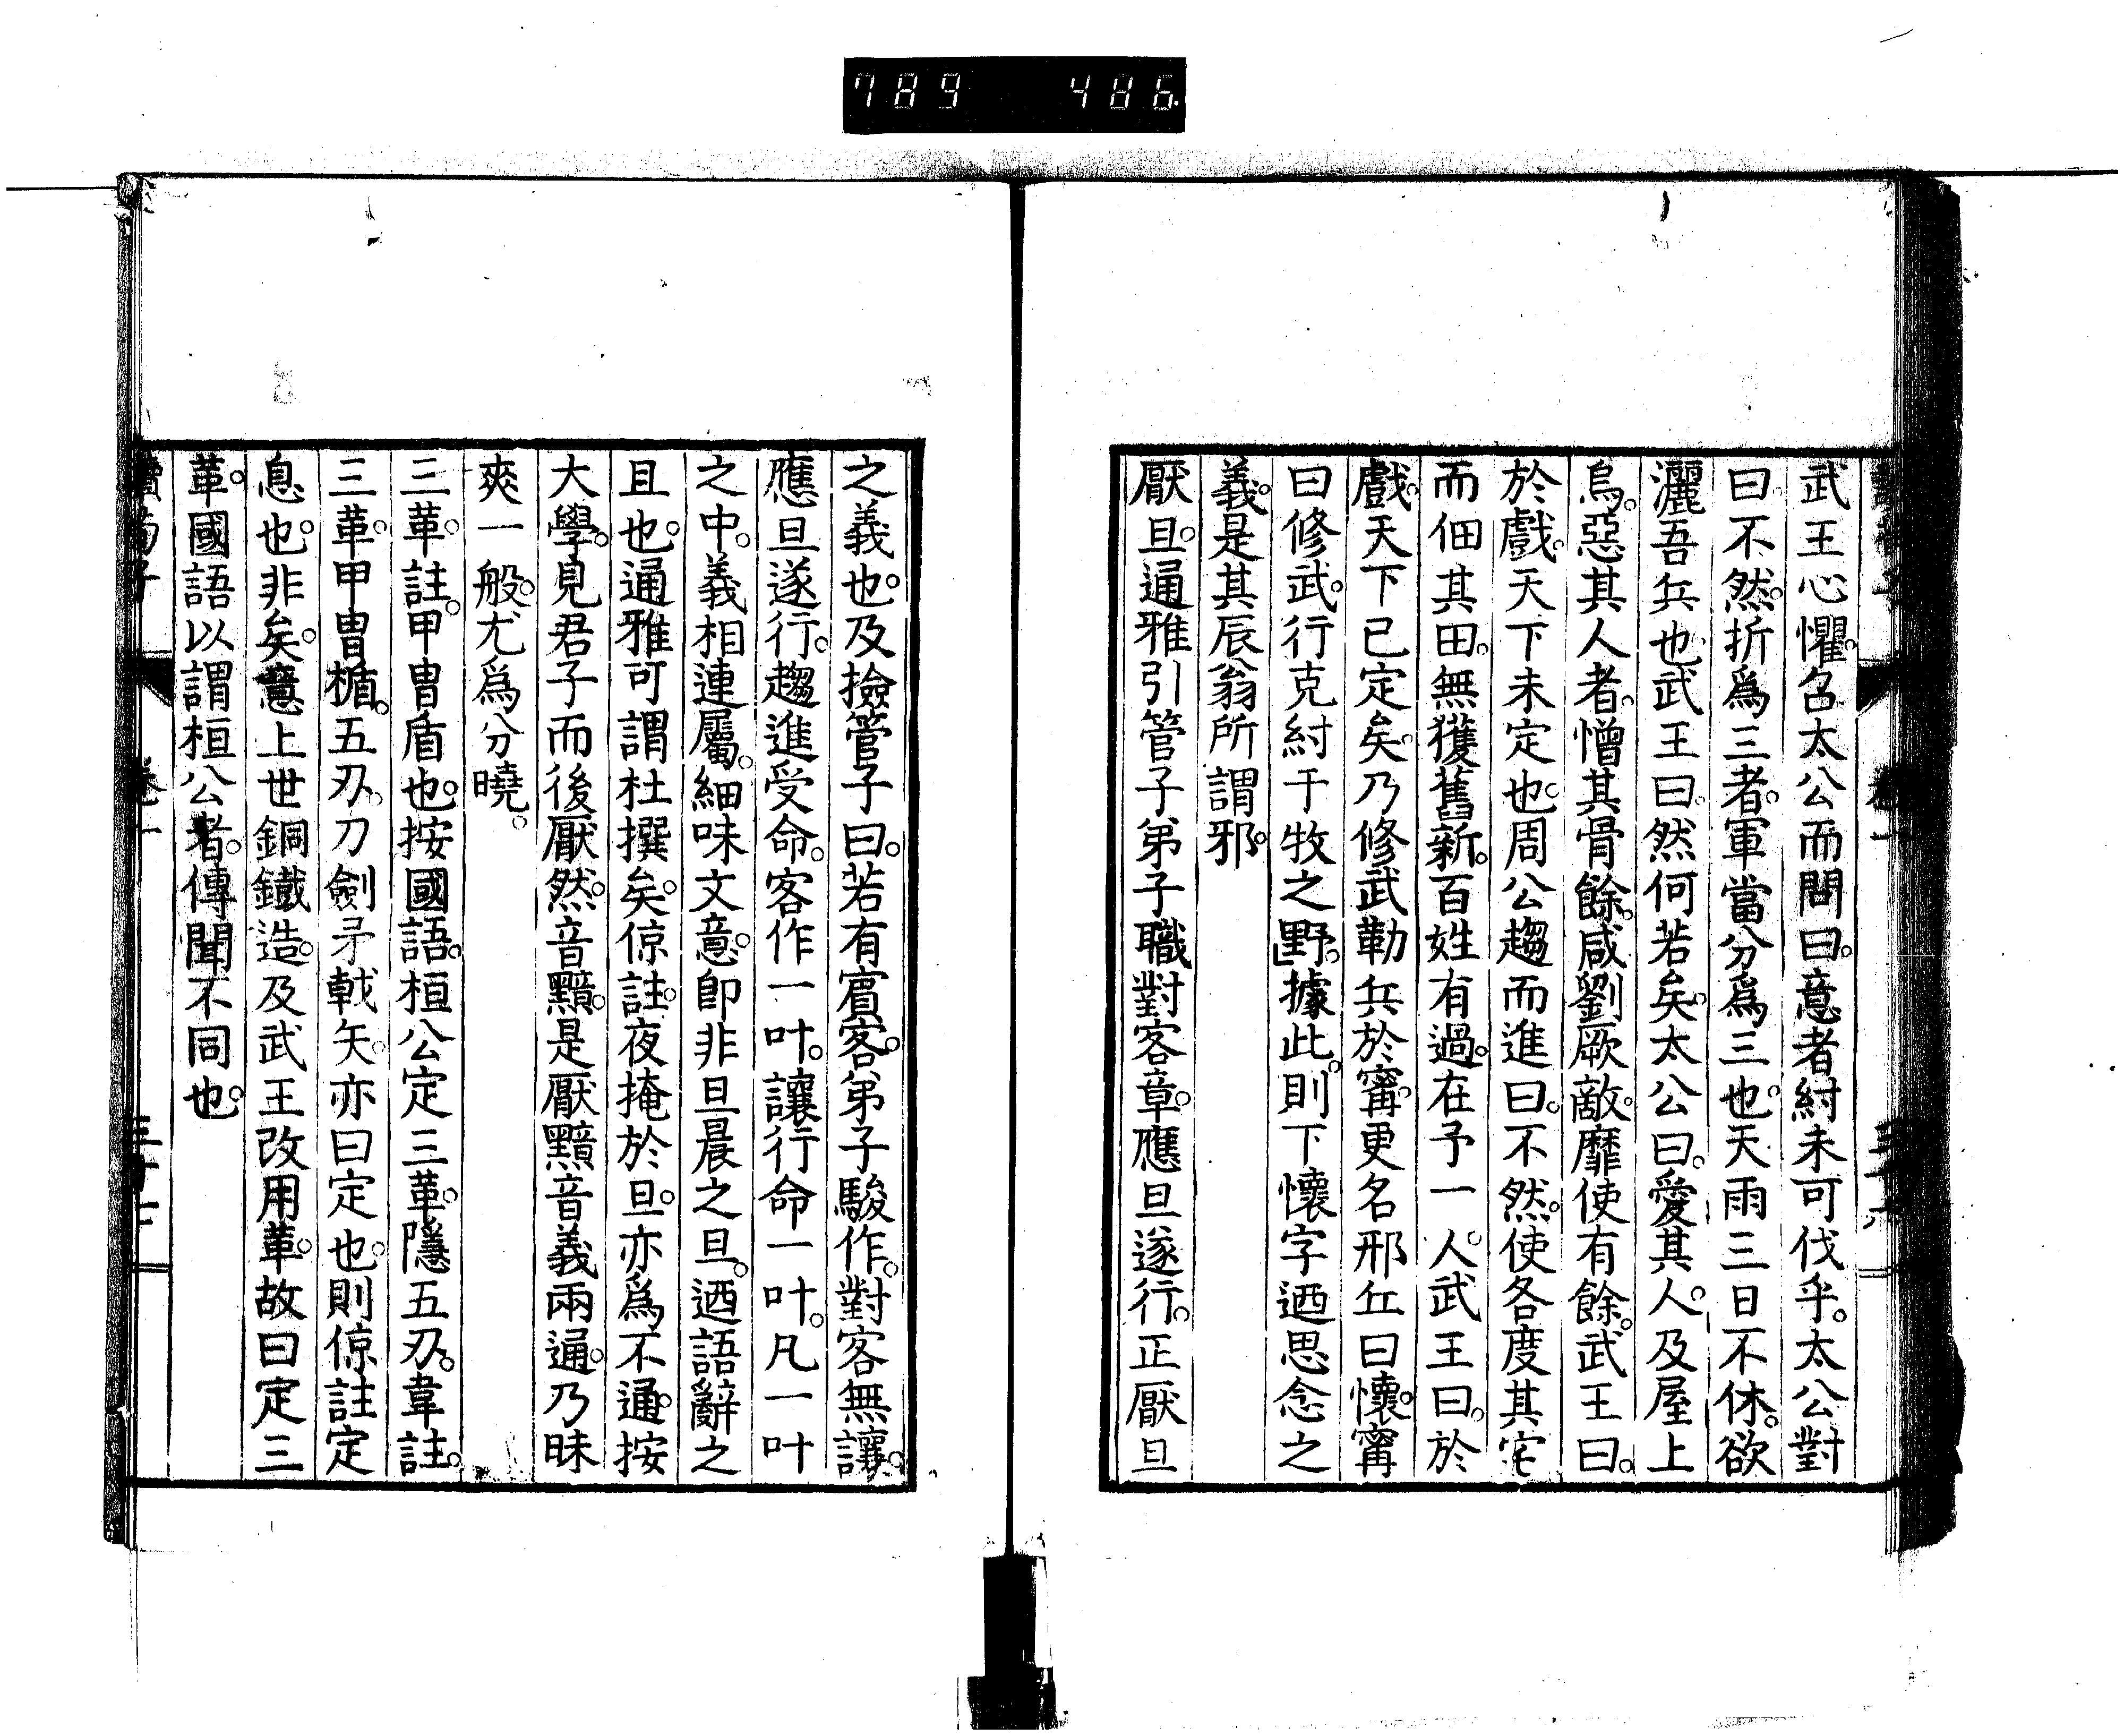 789 486
武王心懼。召太公而問曰。意者紂未可伐乎。太公對
曰。不然。折爲三者。軍當分爲三也。天雨三日不休。欲
灑吾兵也。武王曰。然何若矣。太公曰。愛其人。及屋上
烏。惡其人者。憎其骨餘。咸劉厥敵。靡使有餘。武王曰。
於戲。天下未定也。周公趨而進曰。不然。使各度其宅
而佃其田。無獲舊新。百姓有過。在予一人。武王曰。於
戲。天下已定矣。乃修武勒兵於甯。更名邢丘曰懷。甯
曰修武。行克紂于牧之野。據此。則下懷字迺思念之
義。是其辰翁所謂邪。
厭旦。通雅引管子弟子職對客章。應旦遂行。正厭旦
之義也。及撿管子曰。若有賓客。弟子駿作。對客無讓。
應旦遂行。趨進受命。客作一叶。讓行命一叶。凡一叶
之中。義相連屬。細味文意。卽非旦晨之旦。迺語辭之
且也。通雅可謂杜撰矣。倞註。夜掩於旦。亦爲不通。按
大學。見君子而後厭然。音黯。是厭黯音義兩通。乃昧
爽一般。尤爲分曉。
三革。註。甲冑盾也。按國語。桓公定三革。隱五刃。韋註。
三革。甲冑楯。五刃。刀劍矛戟矢。亦曰定也。則倞註定
息也。非矣。意上世銅鐵造。及武王改用革。故曰定三
革。國語以謂桓公者。傳聞不同也。
卷一